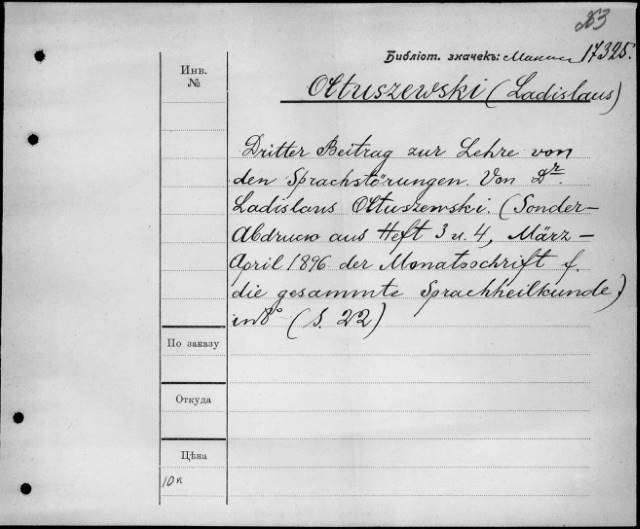 Библіот. значекъ: 17325.
Инв.
№
Ołtuszewski (Ladislaus)
Dritter Beitrag zur Lehre von
den Sprachstörungen. Von Dr.
Ladislaus Ołtuszewski. (Sonder-
Abdruck aus Heft 3 u. 4, März-
April 1896 der Monatsschrift f.
die gesammte Sprachheilkunde)
in 8° (S. 22)
По заказу
Откуда
Цѣна
10 к